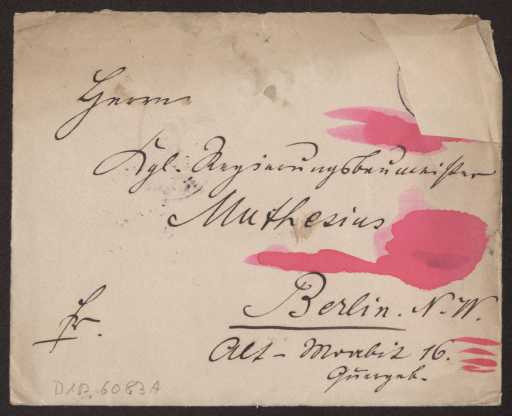 Herrn
Kgl. Regierungsbaumeister
Muthesius
Berlin. N.W.
fr.
Alt-Moabit 16.
Quergeb.
D102-6083A